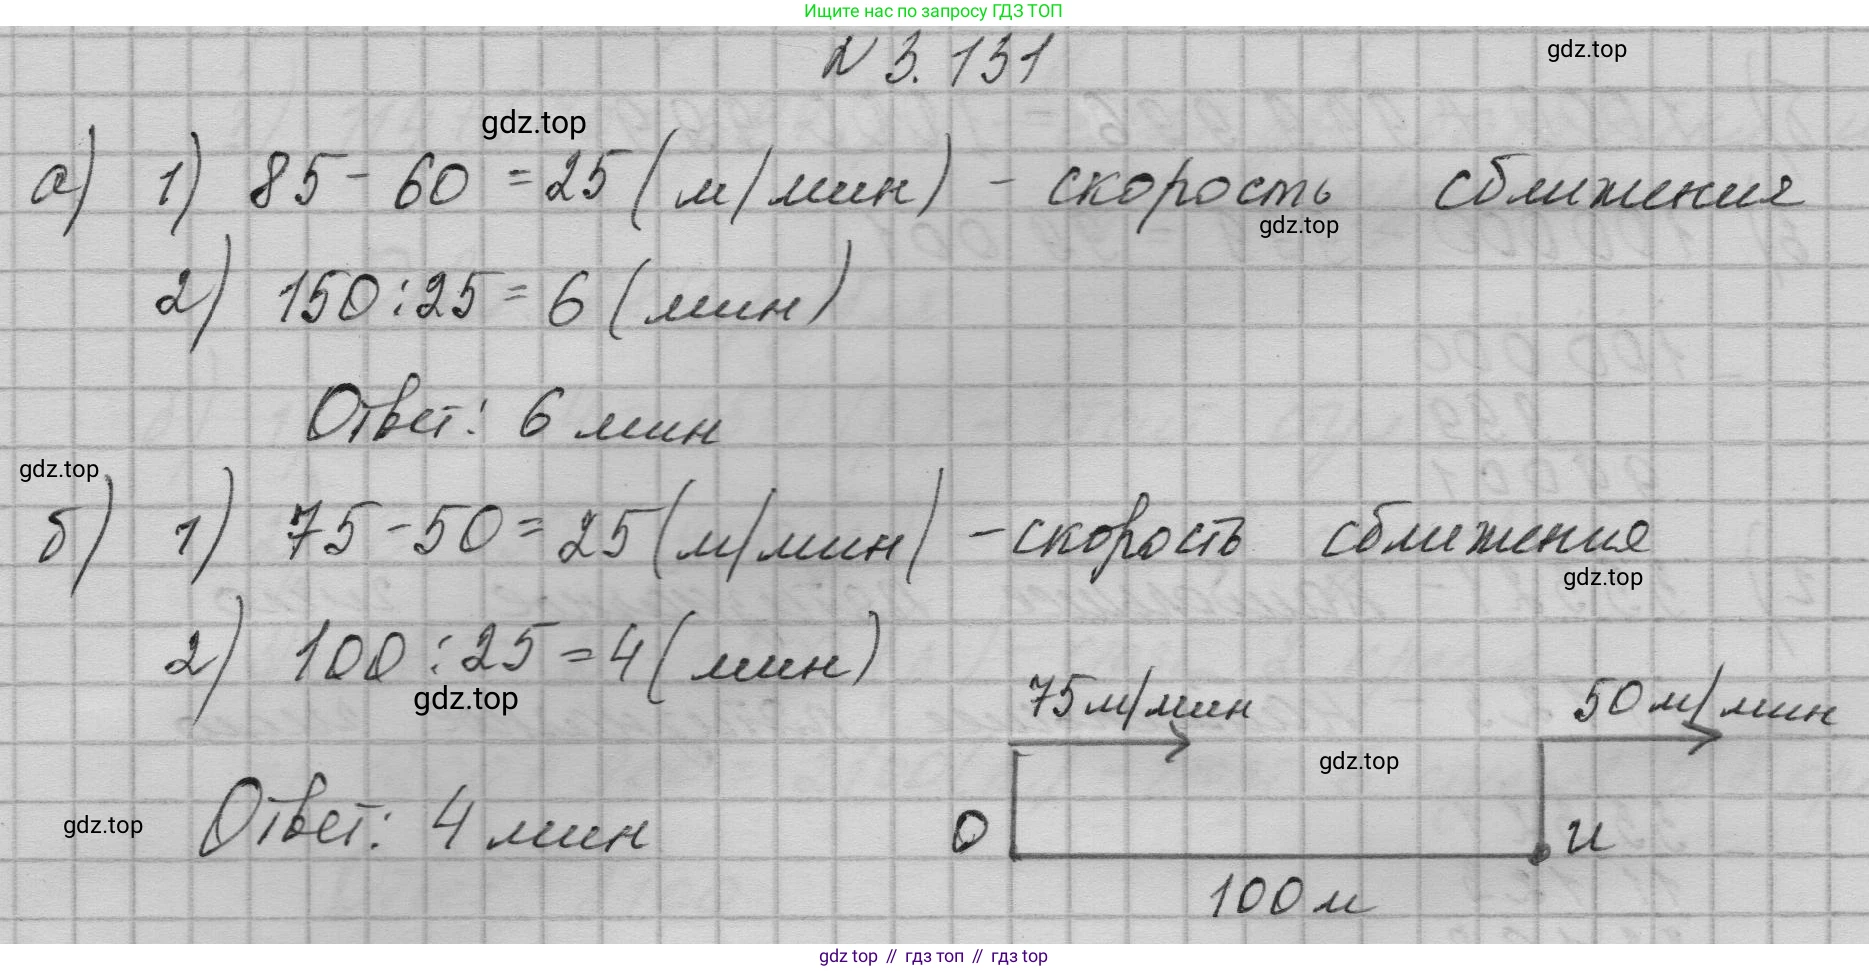 Ищите нас по запросу ГДЗ ТОП
N 3.131
gdz.top
gdz.top
а) 1) 85 - 60 = 25 (м/мин) - скорость сближения
gdz.top
2) 150 : 25 = 6 (мин)
Ответ: 6 мин
gdz.top
б) 1) 75 - 50 = 25 (м/мин) - скорость сближения
gdz.top
2) 100 : 25 = 4 (мин)
gdz.top
75 м/мин
50 м/мин
gdz.top
Ответ: 4 мин
gdz.top
О
И
100 м
gdz.top // гдз топ // гдз top